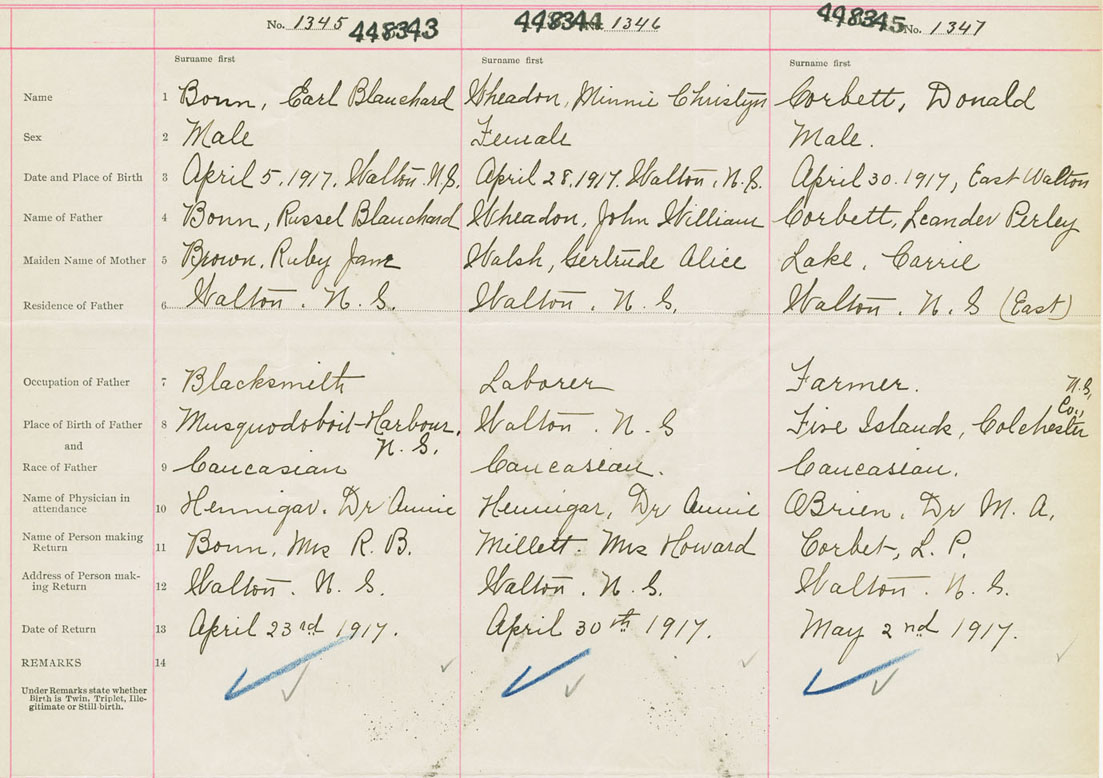 No. 1345 448343 448344 No. 1346 448345 No. 1347
Surname first Surname first Surname first
Name 1 Bonn, Earl Blanchard Wheadon, Minnie Christyn Corbett, Donald
Sex 2 Male Female Male.
Date and Place of Birth 3 April 5, 1917. Walton. N.S. April 28, 1917. Walton, N.S. April 30. 1917, East Walton
Name of Father 4 Bonn, Russel Blanchard Wheadon, John William Corbett, Leander Perley
Maiden Name of Mother 5 Brown, Ruby Jane Walsh, Gertrude Alice Lake, Carrie
Residence of Father 6 Walton. N.S. Walton. N.S. Walton. N.S (East)
Occupation of Father 7 Blacksmith Laborer Farmer.
N.S.
Co.,
Place of Birth of Father 8 Musquodoboit-Harbour, Walton. N.S Five Islands, Colchester
and N.S.
Race of Father 9 Caucasian Caucasian. Caucasian.
Name of Physician in
attendance 10 Hennigar. Dr Annie Hennigar, Dr Annie OBrien, Dr M. A.
Name of Person making
Return 11 Bonn, Mrs R. B. Millett. Mrs Howard Corbet, L. P.
Address of Person mak-
ing Return 12 Walton. N.S. Walton. N.S. Walton. N.S.
Date of Return 13 April 23rd 1917. April 30th 1917. May 2nd 1917.
REMARKS 14
Under Remarks state whether
Birth is Twin, Triplet, Ille-
gitimate or Still-birth.